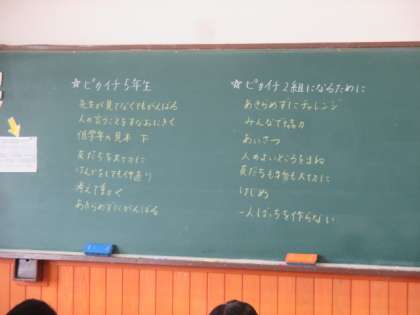 ☆ピカイチ5年生
先生が見てなくてもがんばる
人の言うことをすなおにきく
低学年の見本
友だちを大切に
けんかをしても仲直り
考えて動く
あきらめずにがんばる
☆ピカイチ2組になるために
あきらめずにチャレンジ
みんなで協力
あいさつ
人のよいところをまね
友だちも物も大切に
けじめ
一人ぼっちを作らない